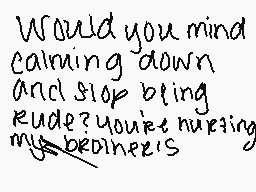 Would you mind
calming down
and stop being
rude? you're hurting
my brother's